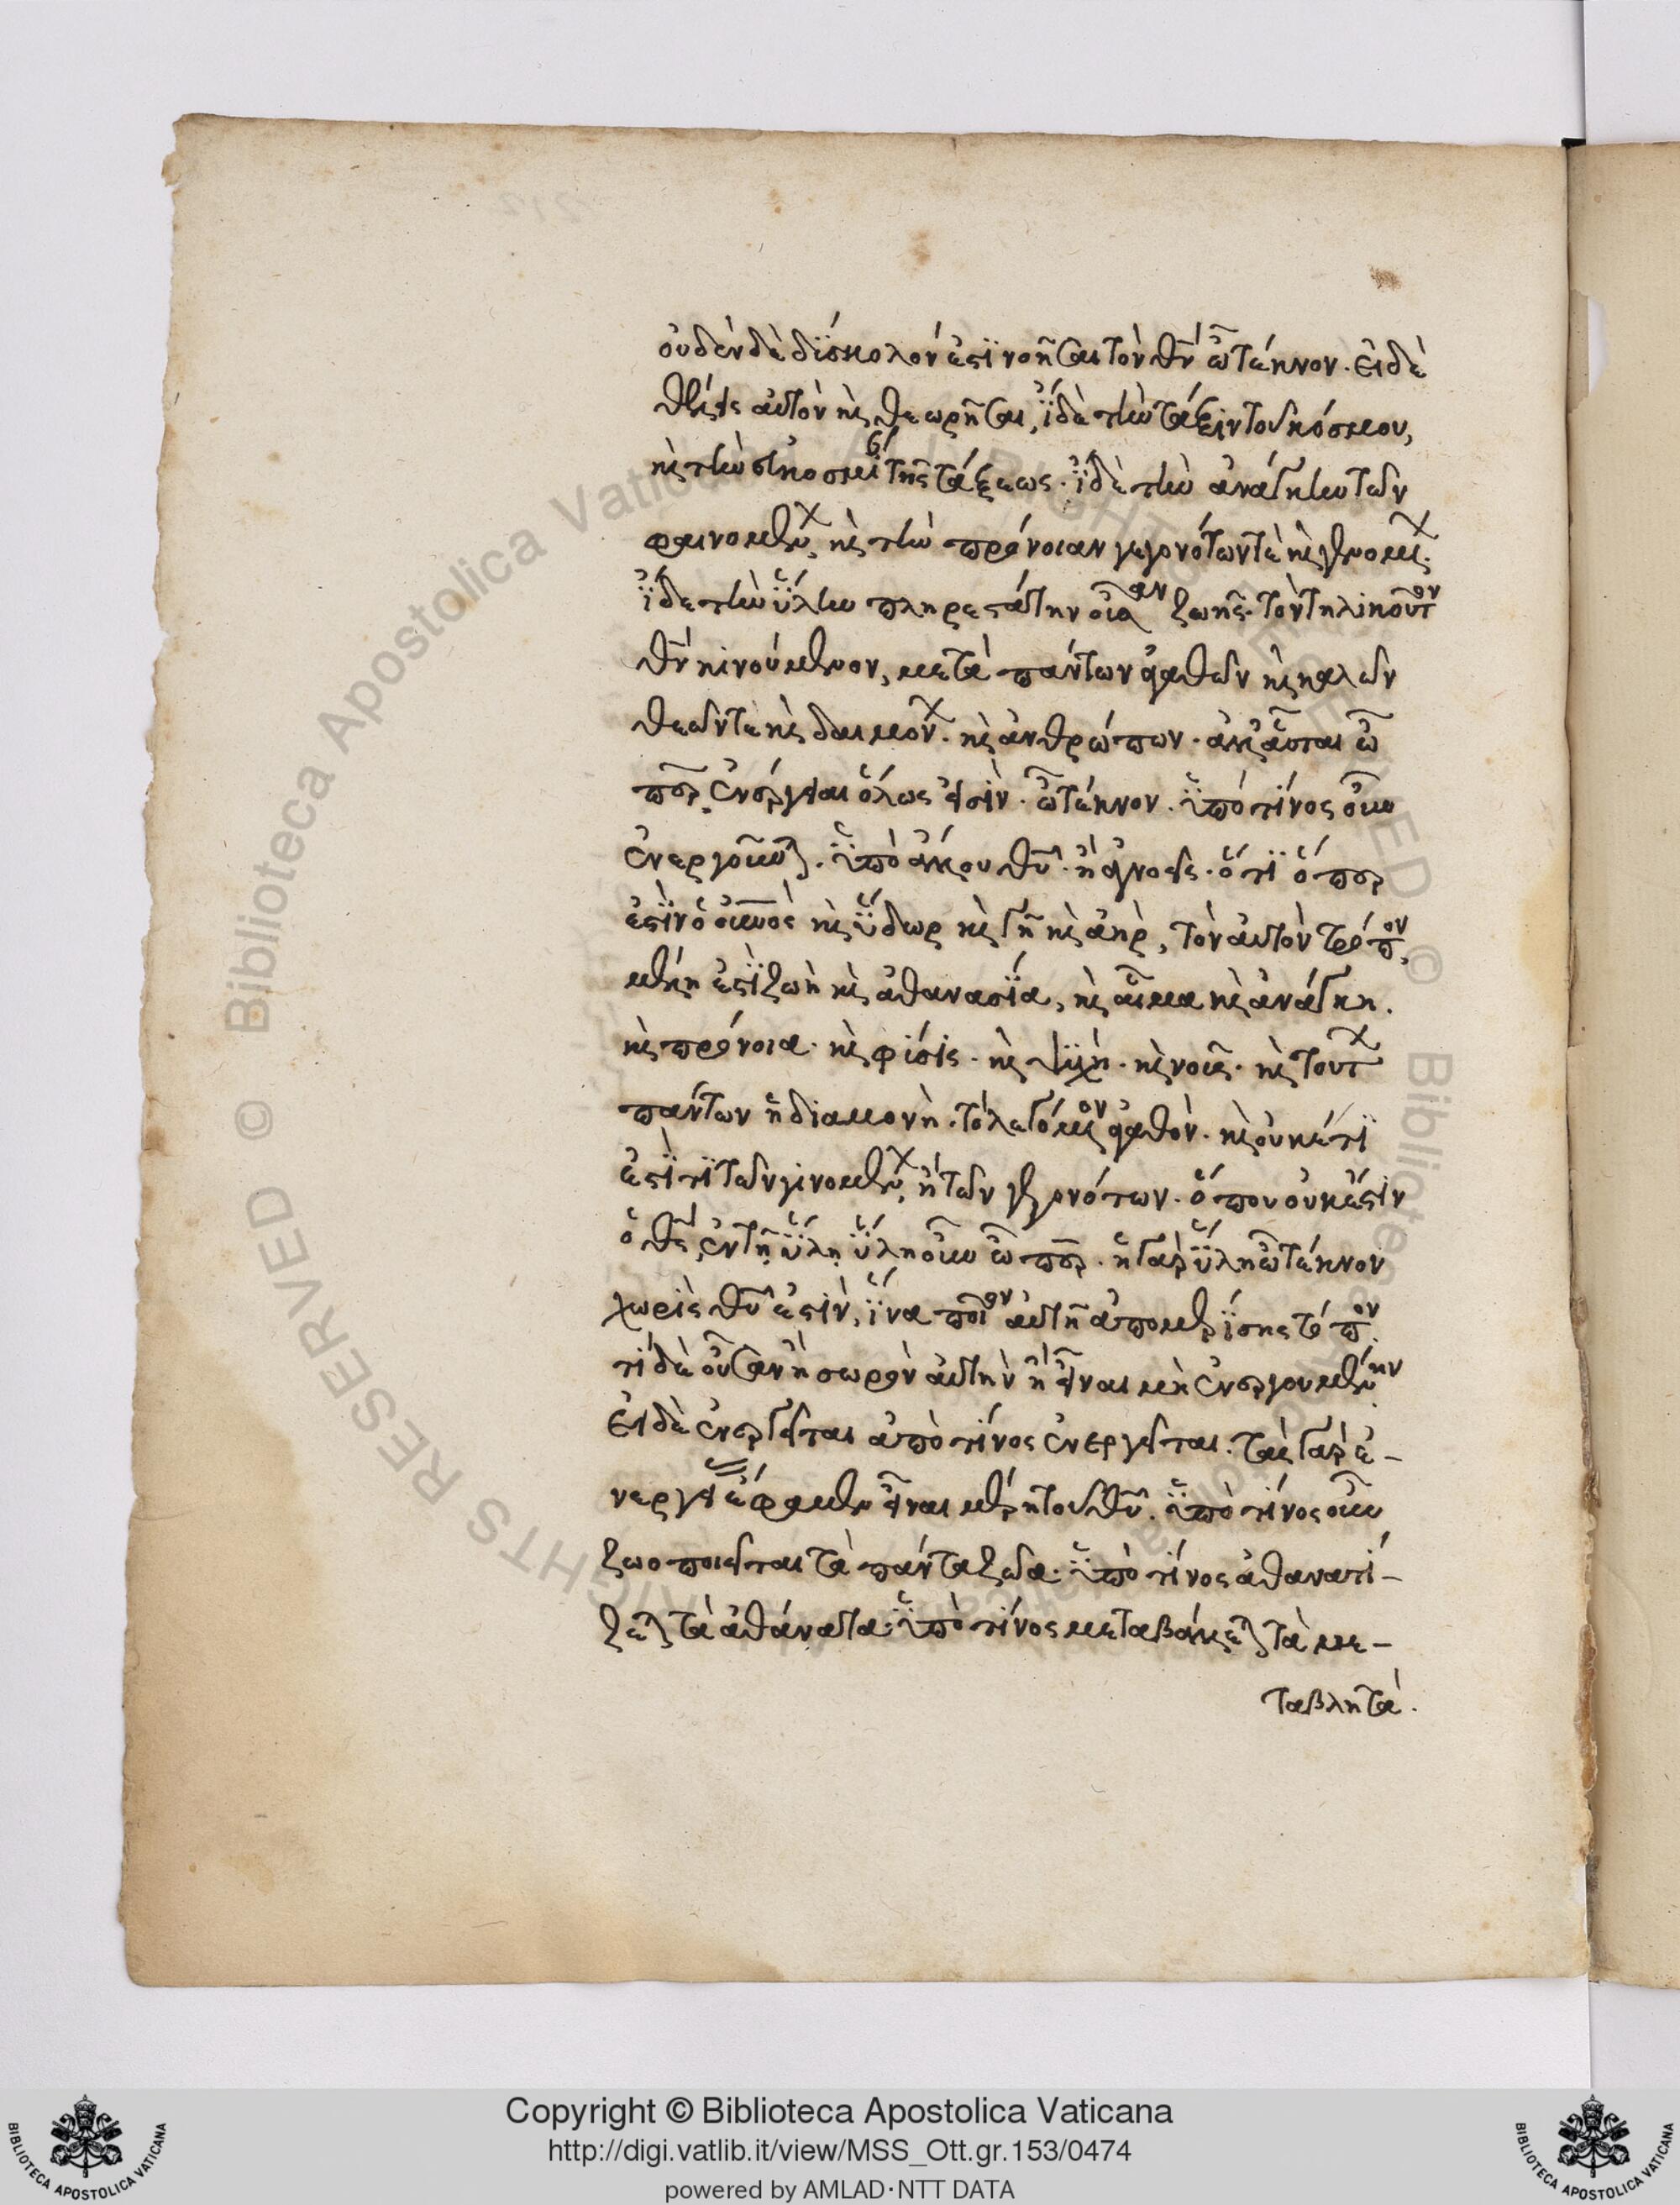 οὐδὲν δὲ δύσκολόν ἐστι νοῆσαι τὸν θν ὦ τέκνον. εἰ δὲ
θέλεις αὐτὸν κὶ θεωρῆσαι, ἴδε τὴν τάξιν τοῦ κόσμου,
κὶ τὴν εὐκοσμίαν τῆς τάξεως. ἴδε τὴν ἀνάγκην τῶν
φαινομένων, κὶ τὴν πρόνοιαν γεγονότων τὲ κὶ γινομένων.
ἴδε τὴν ὕλην πληρεστάτην οὖσαν ζωῆς. τὸν τηλικοῦτον
θν κινούμενον, μετὰ πάντων ἀγαθῶν κὶ καλῶν
θεῶν τε κὶ δαιμόνων. κὶ ἀνθρώπων. ἀλλ' αὗται ὦ
περ ἐνέργειαι ὅλως εἰσίν. ὦ τέκνον. ὑπὸ τίνος οὖν
ἐνεργοῦνται. ὑπὸ ἄλλου θυ. ἢ ἀγνοεῖς. ὅτι ὅπερ
ἐστὶν ὁ οὐνος κὶ ὕδωρ κὶ γῆ κὶ ἀὴρ, τὸν αὐτὸν τρόπον,
μέλη ἐστὶ ζωὴ κὶ ἀθανασία, κὶ αἷμα κὶ ἀνάγκη.
κὶ πρόνοια. κὶ φύσις. κὶ ψυχὴ. κὶ νοῦς. κὶ τούτων
πάντων ἡ διαμονὴ. τὸ λεγόμενον ἀγαθὸν. κὶ οὐκέτι
ἐστὶ τὶ τῶν γινομένων, ἢ τῶν γεγονότων. ὅπου οὐκ ἔστιν
ὁ θς, ἐν τῇ ὕλῃ, ὕλη οὖν ὦ περ. ἡ γὰρ ὕλη ὦ τέκνον
χωρὶς θυ ἐστὶν, ἵνα ποῖον αὐτῇ ἀπομερίσης τόπον.
τί δὲ οὖσαν ἢ σωρὸν αὐτὴν ἢ εἶναι μὴ ἐνεργουμένην
εἰ δὲ ἐνεργεῖται ἀπὸ τίνος ἐνεργεῖται. τὰς γὰρ ἐ-
νεργείας ἔφαμεν εἶναι μέρη τοῦ θυ. ὑπὸ τίνος οὖν
ζωοποιεῖται τὰ πάντα ζῶα. ὑπὸ τίνος ἀθανατί-
ζεται τὰ ἀθάνατα. ὑπὸ τίνος μεταβάλλεται τὰ με-
ταβλητὰ.
Copyright © Biblioteca Apostolica Vaticana
http://digi.vatlib.it/view/MSS_Ott.gr.153/0474
powered by AMLAD·NTT DATA